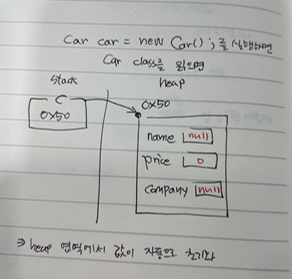 Car car = new Car(); 를 실행하면
Car class를 읽으면
stack heap
C 0x50
0x50
name null
price 0
company null
⇒ heap 영역에서 값이 자동으로 초기화